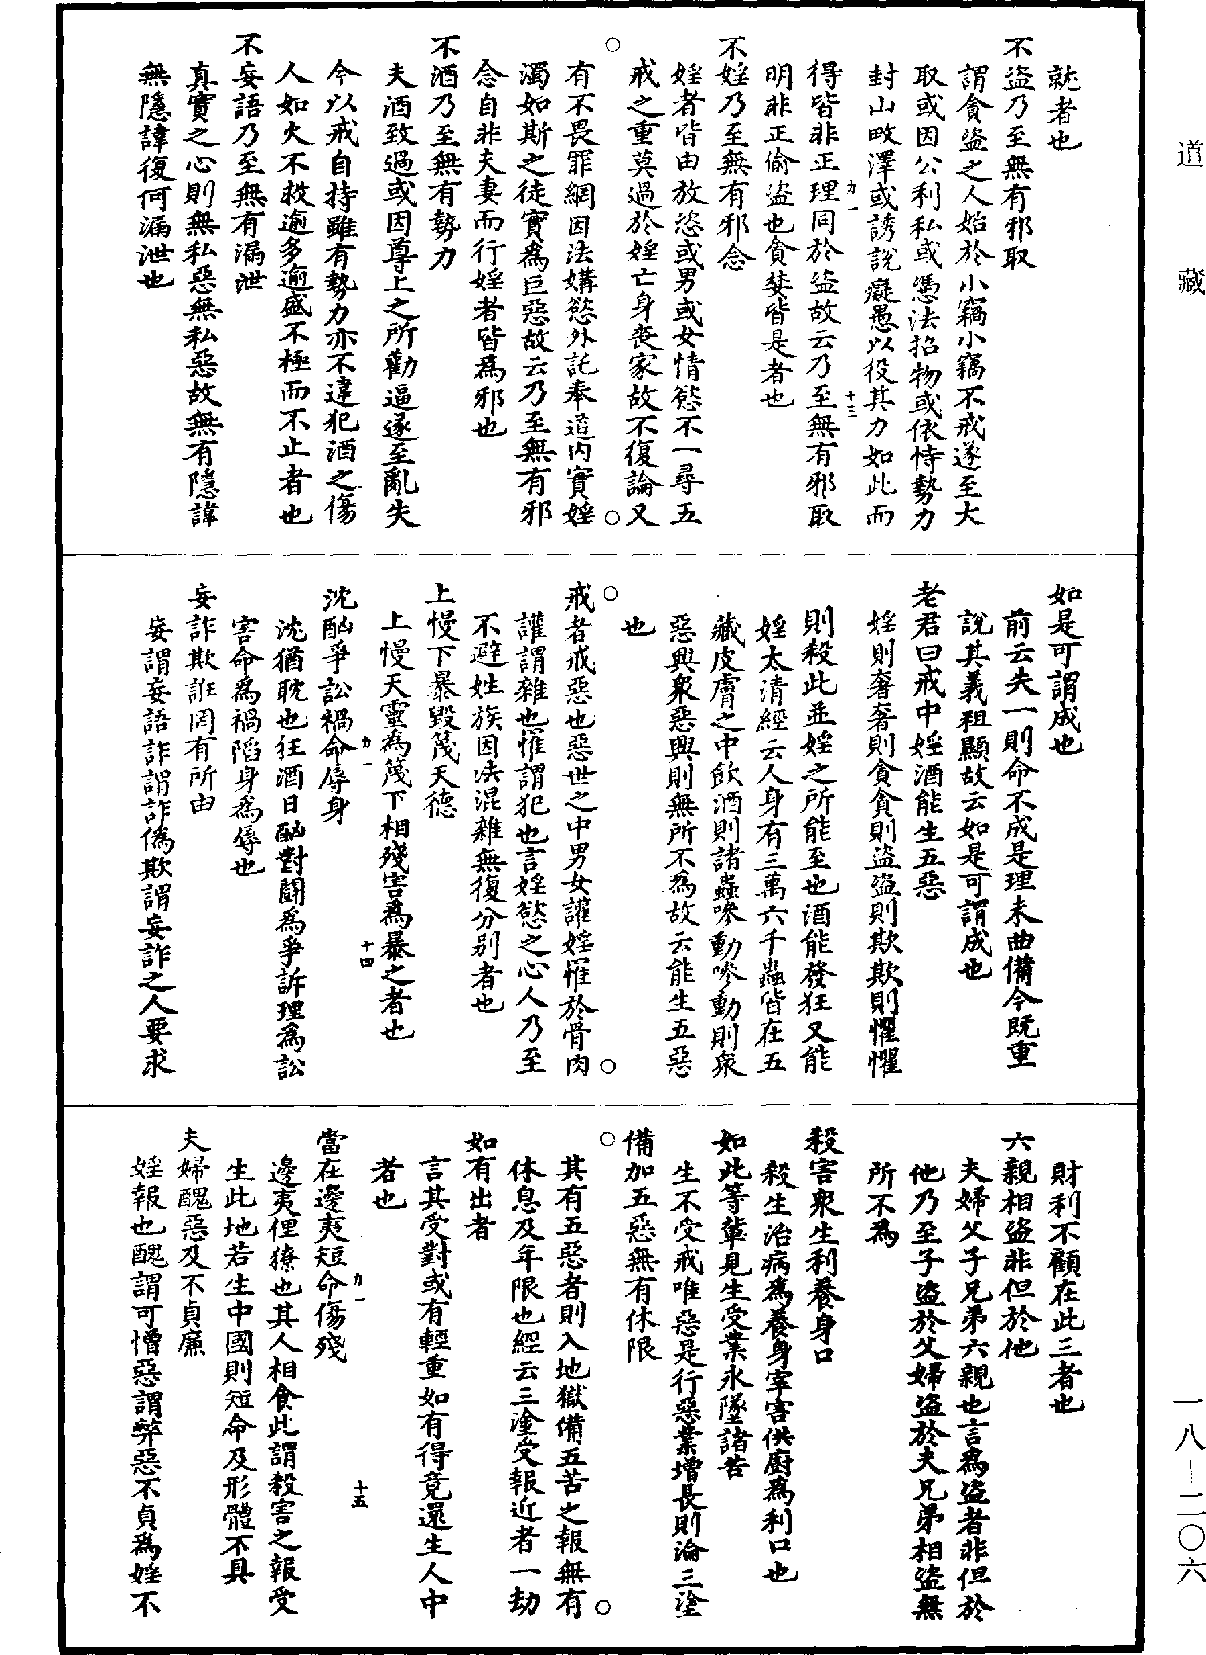 道藏
就者也
不盜乃至無有邪取
謂貪盜之人始於小竊小竊不戒遂至大
取或因公利私或憑法招物或依恃勢力
封山畋澤或誘說癡愚以役其力如此而
力一 十三
得皆非正理同於盜故云乃至無有邪取
明非正偷盜也貪婪皆是者也
不婬乃至無有邪念
婬者皆由放恣或男或女情慾不一尋五
戒之重莫過於婬亡身喪家故不復論又
有不畏罪網因法媾慾外託奉道內實婬
濁如斯之徒實為巨惡故云乃至無有邪
念自非夫妻而行婬者皆為邪也
不酒乃至無有勢力
夫酒致過或因尊上之所勸逼遂至亂失
今以戒自持雖有勢力亦不違犯酒之傷
人如火不救逾多逾盛不極而不止者也
不妄語乃至無有漏泄
真實之心則無私惡無私惡故無有隱諱
無隱諱復何漏泄也
如是可謂成也
前云失一則命不成是理未曲備今既重
說其義粗顯故云如是可謂成也
老君曰戒中婬酒能生五惡
婬則奢奢則貪貪則盜盜則欺欺則懼懼
則殺此並婬之所能至也酒能發狂又能
婬太清經云人身有三萬六千蟲皆在五
藏皮膚之中飲酒則諸蟲嘇動嘇動則衆
惡興衆惡興則無所不為故云能生五惡
也
戒者戒惡也惡世之中男女讙婬罹於骨肉
讙謂雜也罹謂犯也言婬慾之心人乃至
不避姓族因決混雜無復分别者也
上慢下暴毀篾天德
上慢天靈為篾下相殘害為暴之者也
力一 十四
沈酗爭訟禍命辱身
沈猶耽也狂酒日酗對鬪為爭訴理為訟
害命為禍陷身為辱也
妄詐欺誑罔有所由
妄謂妄語詐謂詐偽欺謂妄詐之人要求
財利不顧在此三者也
六親相盜非但於他
夫婦父子兄弟六親也言為盜者非但於
他乃至子盜於父婦盜於夫兄弟相盜無
所不為
殺害衆生利養身口
殺生治病為養身宰害供廚為利口也
如此等輩見生受業永墜諸苦
生不受戒唯惡是行惡業增長則淪三塗
備加五惡無有休限
其有五惡者則入地獄備五苦之報無有
休息及年限也經云三塗受報近者一劫
如有出者
言其受對或有輕重如有得竟還生人中
者也
力一 十五
當在邊夷短命傷殘
邊夷俚獠也其人相食此謂殺害之報受
生此地若生中國則短命及形體不具
夫婦醜惡及不貞廉
婬報也醜謂可憎惡謂弊惡不貞為婬不
一八—二〇六